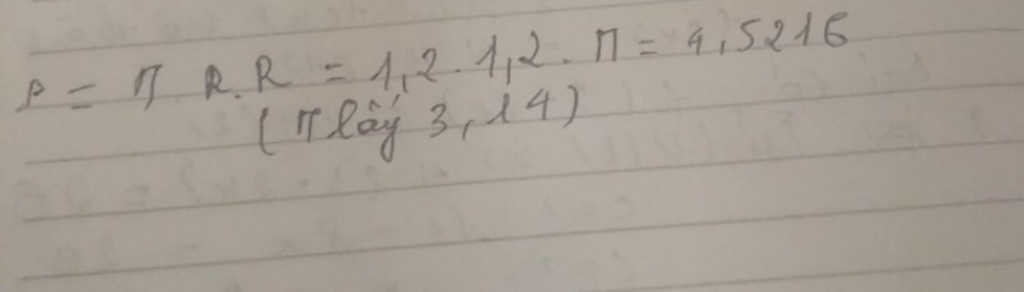 P = π R.R = 1,2.1,2.π = 4,5216
(π lấy 3,14)